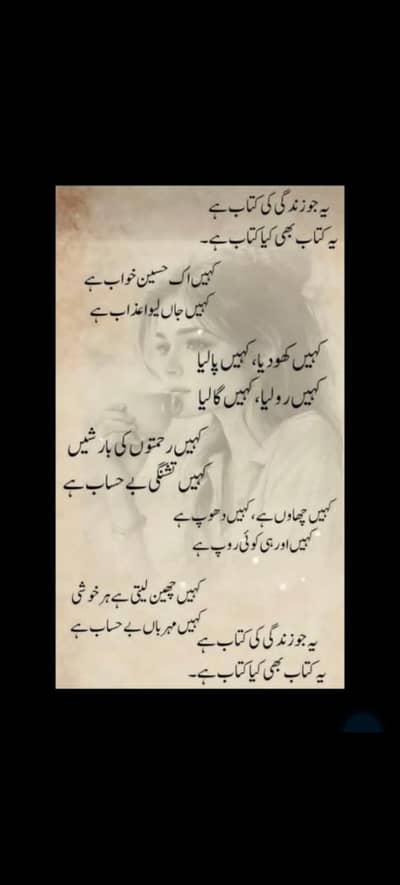 یہ جو زندگی کی کتاب ہے
یہ کتاب بھی کیا کتاب ہے۔
کہیں اک حسین خواب ہے
کہیں جاں لیوا عذاب ہے
کہیں کھو دیا، کہیں پا لیا
کہیں رو لیا، کہیں گا لیا
کہیں رحمتوں کی بارشیں
کہیں تشنگی بے حساب ہے
کہیں چھاوں ہے، کہیں دھوپ ہے
کہیں اور ہی کوئی روپ ہے
کہیں چھین لیتی ہے ہر خوشی
کہیں مہرباں بے حساب ہے
یہ جو زندگی کی کتاب ہے
یہ کتاب بھی کیا کتاب ہے۔